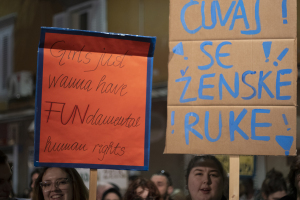 Girls just
wanna have
FUNdamental
human rights
ČUVAJ!
SE
ŽENSKE!
!RUKE!